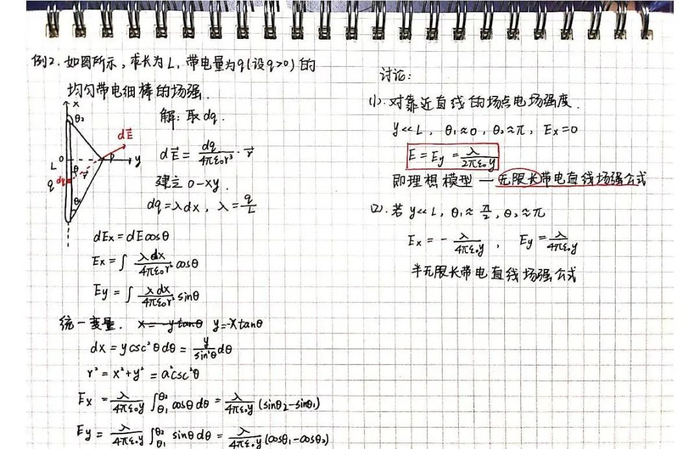 例2. 如图所示, 求长为L, 带电量为q(设q>0)的
均匀带电细棒的场强.
x
θ₂
dE⃗
L
0
P
y
θ
r⃗
q
dq
θ₁
解: 取dq.
dE⃗ = dq/4πε₀r³ · r⃗
建立 0-xy.
dq=λdx, λ= q/L
dEx=dEcosθ
Ex=∫ λdx/4πε₀r² cosθ
Ey=∫ λdx/4πε₀r² sinθ
统一变量. x=-ytanθ y=-xtanθ
dx=ycsc²θdθ= y/sin²θ dθ
r²=x²+y²=a²csc²θ
Ex = λ/4πε₀y ∫θ₁^θ₂ cosθdθ = λ/4πε₀y (sinθ₂-sinθ₁)
Ey = λ/4πε₀y ∫θ₁^θ₂ sinθdθ = λ/4πε₀y (cosθ₁-cosθ₂)
讨论:
(1). 对靠近直线的场点电场强度.
y≪L, θ₁≈0, θ₂≈π, Ex=0
E=Ey= λ/2πε₀y
即理想模型—无限长带电直线场强公式
(2). 若 y≪L, θ₁≈ π/2, θ₂≈π
Ex = - λ/4πε₀y , Ey= λ/4πε₀y
半无限长带电直线场强公式